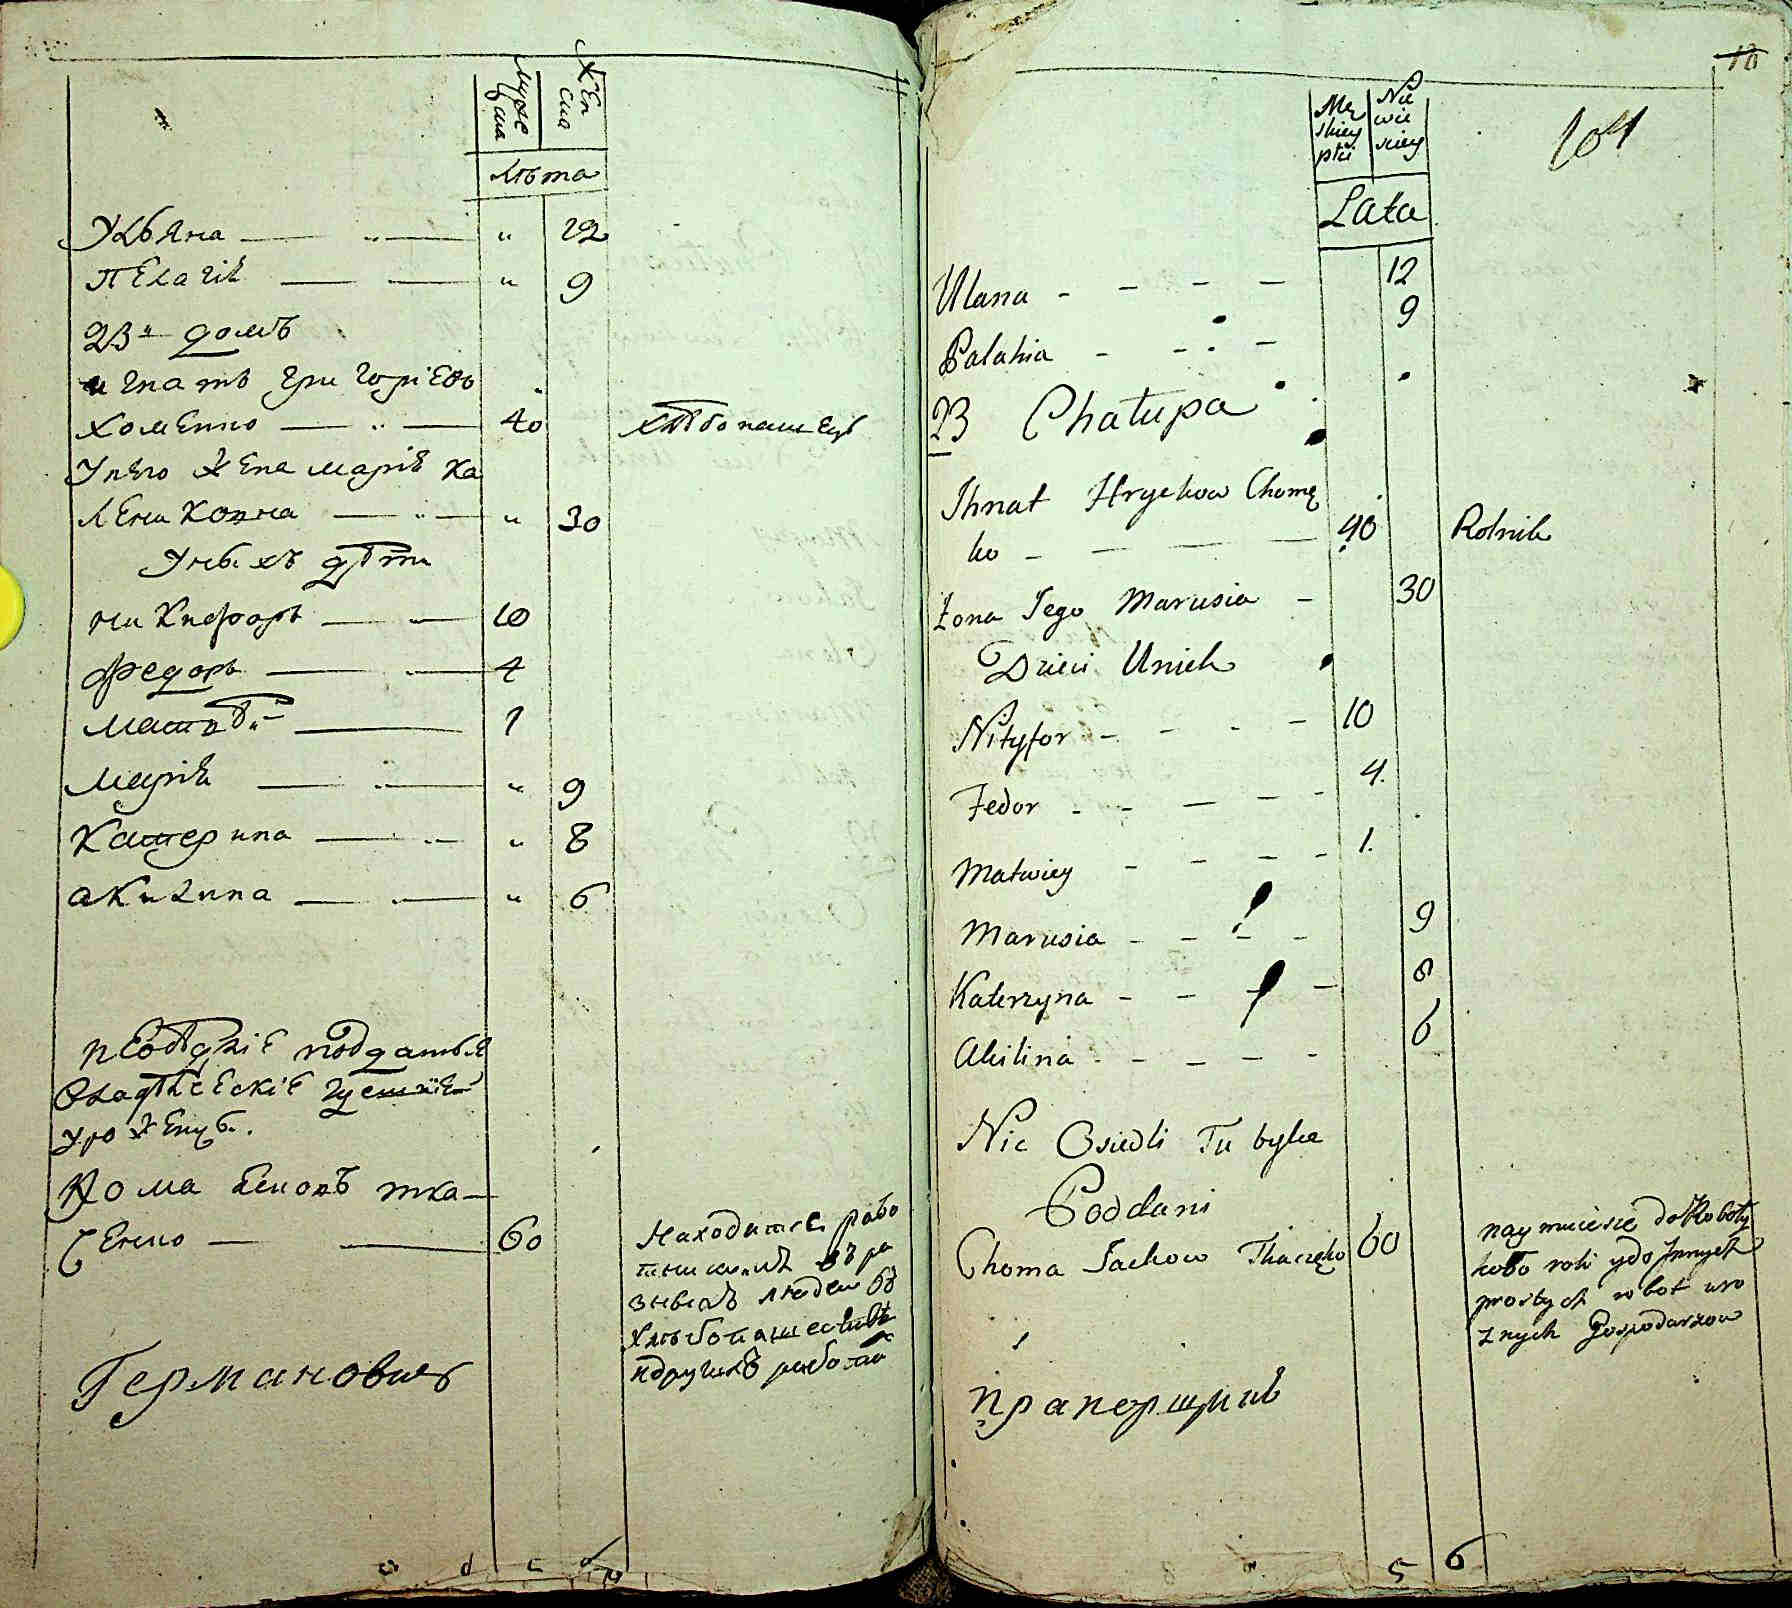 Муже
ска
Жен
ска
лѣта
Ульяна — „ — „ 12
Пелагія — — „ 9
23й домъ
Игнатъ Григоріевъ
Хоменко — „ — 40 хлѣбопашецъ
У него жена Марія Ка
лениковна — „ — „ 30
У нихъ дѣти
Никифоръ — — 10
Федоръ — — 4
Матвѣй — 1
Марія — „ — „ 9
Катерина — „ — „ 8
Акилина — — „ 6
подданые
Владѣлческіе
Хома Яковъ Тка—
ченко — — 60
Находится рабо
людей въ
хлѣбопашествѣ
Германович
10
104
Mę
skiey
płci
Nie
wie
sciey
Lata
Ulana - - - - 12
Palahia - - - - 9
23 Chałupa
Ihnat Hryckow Chomę
ko - — — — 40 Rolnik
Żona Jego Marusia - 30
Dzieci Unich
Nikyfor - - - - 10
Fedor - - — - - 4.
Matwiey - - - - 1.
Marusia - - - - 9
Katerzyna - - - - 8
Akilina - - - - 6
Nie Osiedli Tu bylce
Poddani
Choma Jackow Tkaczęko 60
naymuiesię do Roboty
koło roli ydo Innych
prostych robot uro
znych Gospodarzow
Прапорщикъ
5 6